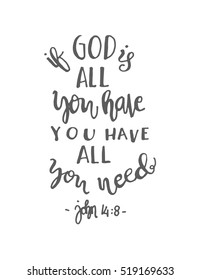 if GOD is
ALL
you have
YOU HAVE
ALL
you need
- john 14:8 -
shutterstock.com · 519169633